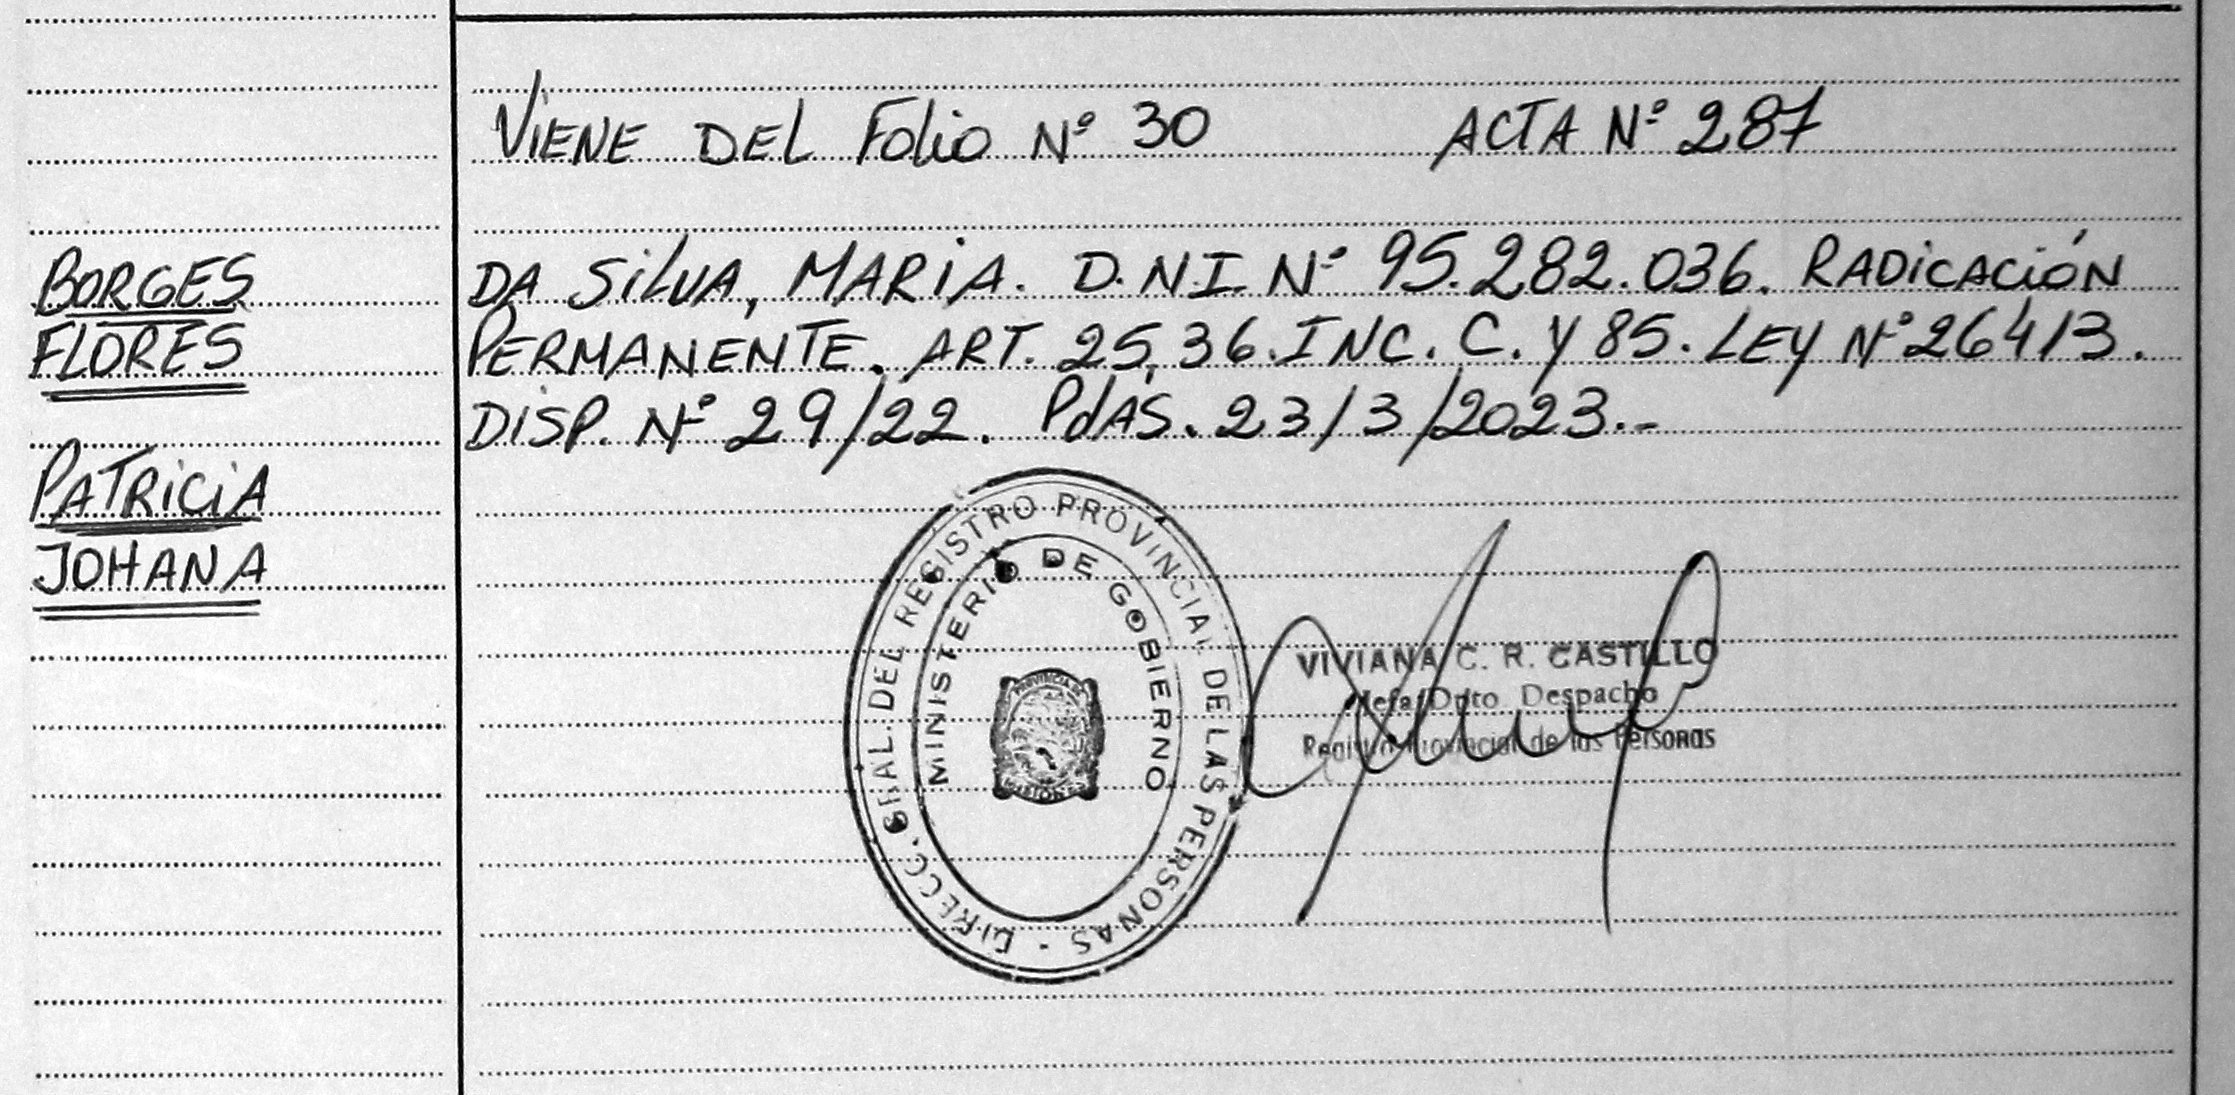 VIENE DEL FOLIO Nº 30 ACTA Nº 287
BORGES
FLORES
PATRICIA
JOHANA
DA SILVA, MARIA. D.N.I. Nº 95.282.036. RADICACIÓN
PERMANENTE. ART. 25, 36. INC. C. Y 85. LEY Nº 26413.
DISP. Nº 29/22. PdAS. 23/3/2023.-
DIRECC. GRAL. DEL REGISTRO PROVINCIAL DE LAS PERSONAS -
MINISTERIO DE GOBIERNO
PROVINCIA DE
MISIONES
VIVIANA C. R. CASTILLO
Jefa Dpto Despacho
Registro Provincial de las Personas